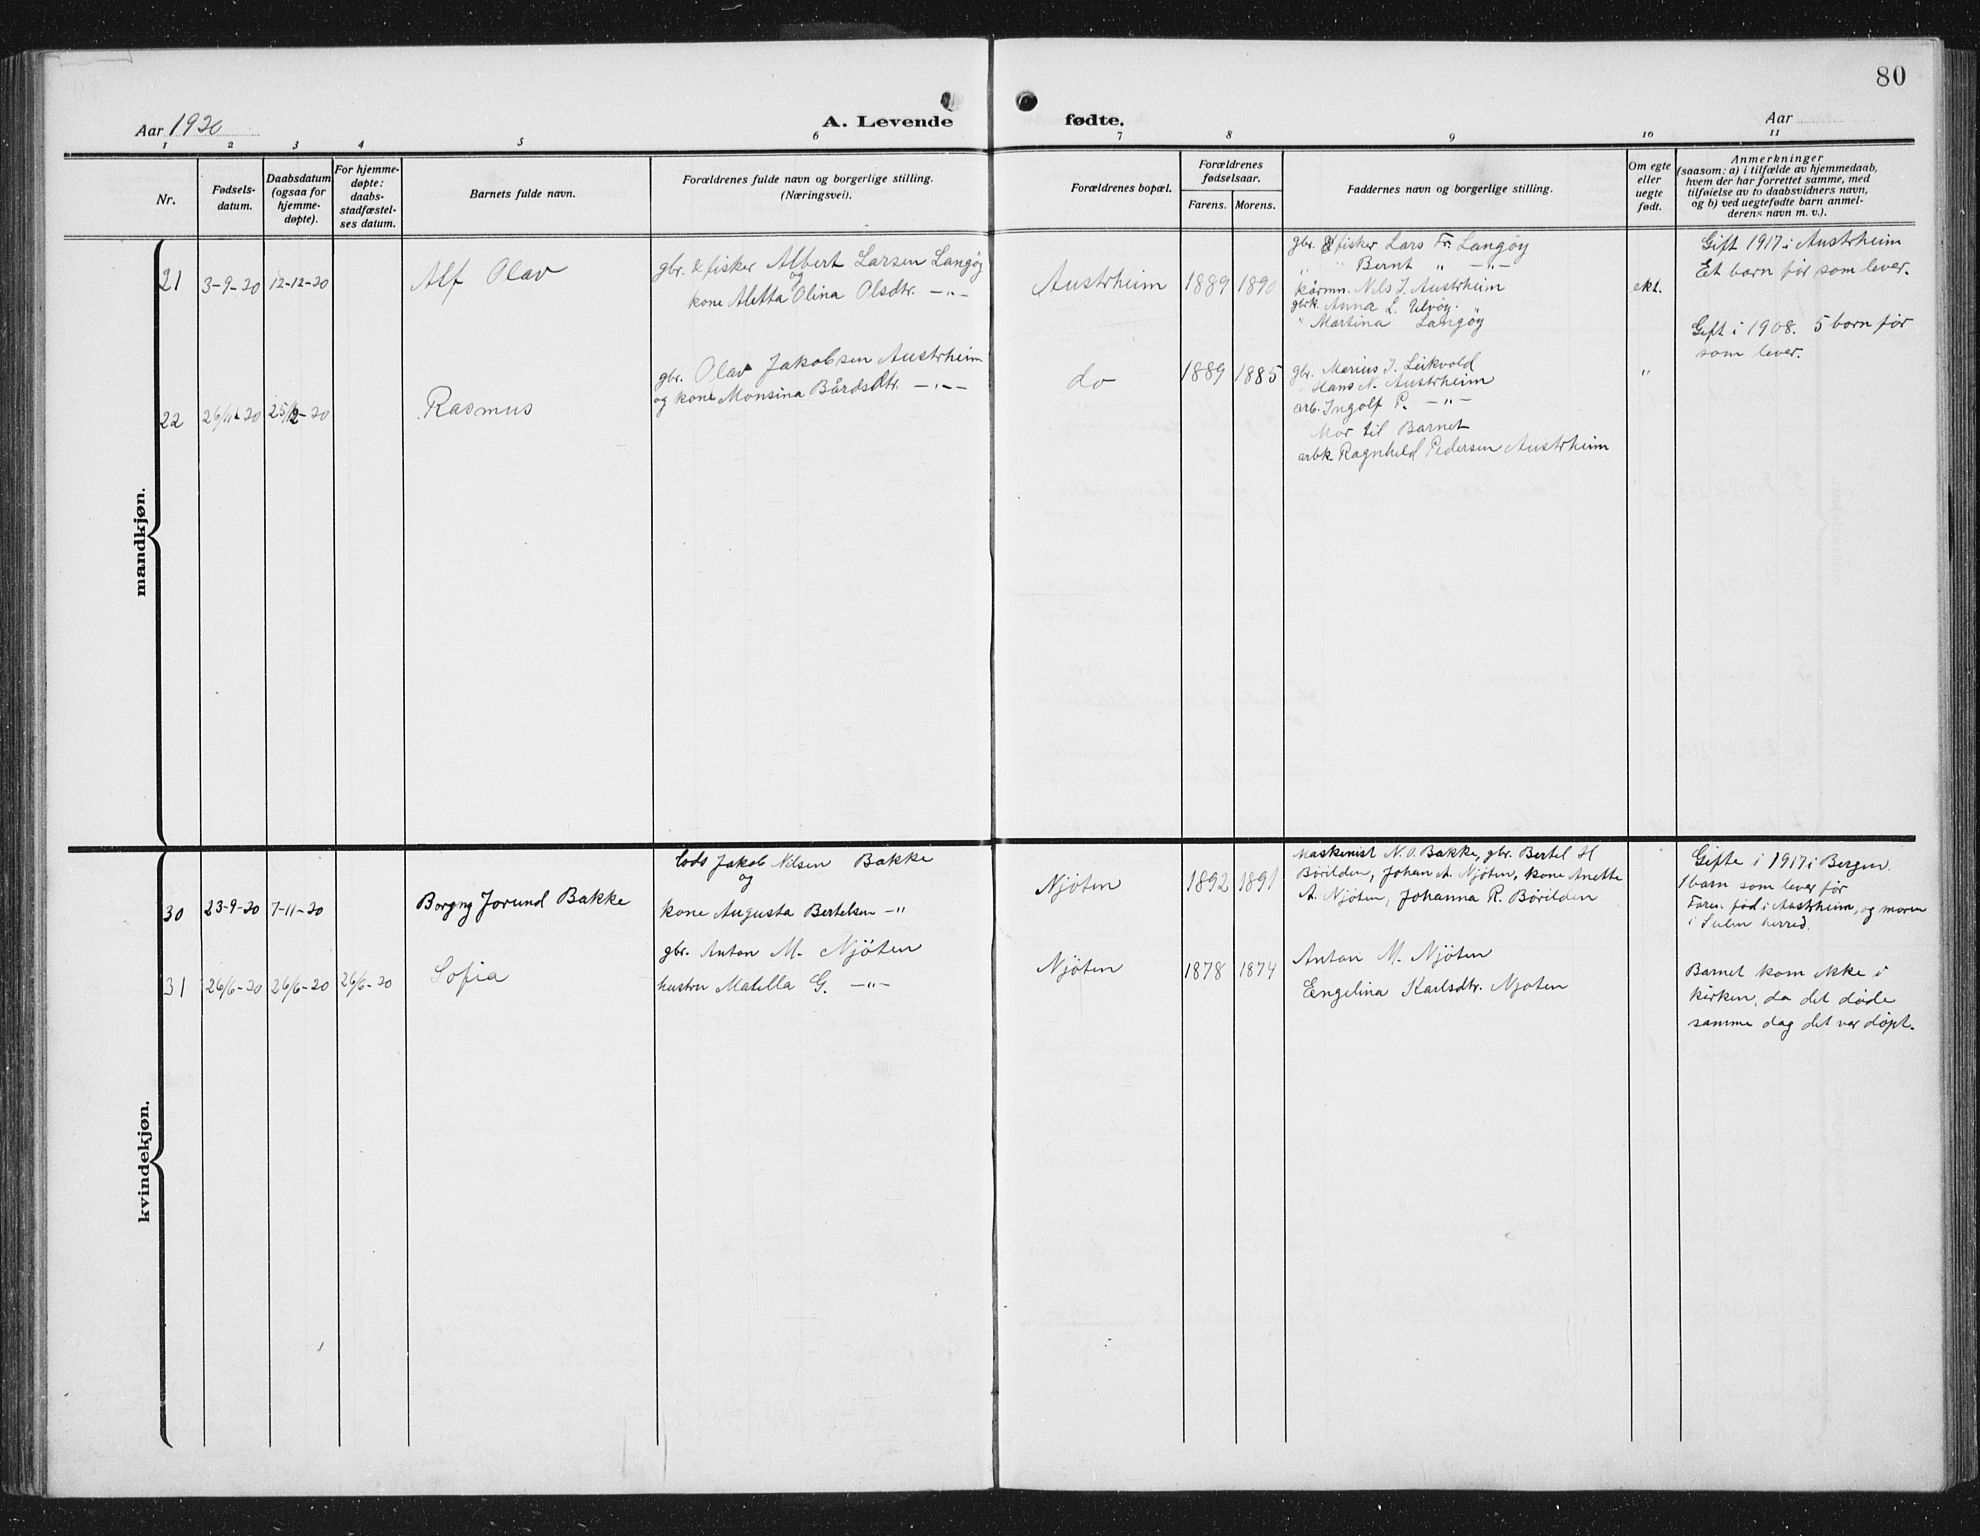 80
Aar 1920
A. Levende
fødte.
Aar
1 2 3 4 5 6 7 8 9 10 11
Nr.
Fødsels-
datum.
Daabsdatum
(ogsaa for
hjemme-
døpte).
For hjemme-
døpte:
daabs-
stadfæstel-
ses datum.
Barnets fulde navn.
Forældrenes fulde navn og borgerlige stilling.
(Næringsvei).
Forældrenes bopæl.
Forældrenes
fødselsaar.
Farens. Morens.
Faddernes navn og borgerlige stilling.
Om egte
eller
uegte
født.
Anmerkninger
(saasom: a) i tilfælde av hjemmedaab,
hvem der har forrettet samme, med
tilføielse av to daabsvidners navn,
og b) ved uegtefødte barn anmel-
derens navn m. v.).
mandkjøn.
21 3-9-20 12-12-20 Alf Olav
gbr. & fisker Albert Larsen Langøy
og
kone Aletta Olina Olsdtr. -"-
Austrheim 1889 1890
gbr. & fisker Lars Fr. Langøy
" " Bernt " -"-
kårmn. Nils J. Austrheim
gbrk. Anna L. Ulvøy.
" Martina Langøy
ekt.
Gift 1917 i Austrheim
Et barn før som lever.
22 26/11-20 25/12-20 Rasmus
gbr. Olav Jakobsen Austrheim
og kone Monsina Bårdsdtr. -"-
do 1889 1885
gbr. Marius J. Leikvold
Hans N. Austrheim
arb. Ingolf P. -"-
Mor til Barnet
arbk. Ragnhild Pedersen Austrheim
"
Gift i 1908. 5 born før
som lever.
kvindekjøn.
30 23-9-20 7-11-20 Borgny Jorund Bakke
Lods Jakob Nilsen Bakke
og
kone Augusta Bertelsen -"
Njøten 1892 1891
Maskenist N. O. Bakke, gbr. Bertel H
Børilden, Johan A. Njøten, kone Anette
A. Njøten, Johanna R. Børilden
Gifte i 1917 i Bergen.
1 barn som lever før
Faren fød i Austrheim, og moren
i Sulen herred.
31 26/6-20 26/6-20 26/6-20 Sofia
gbr. Anton M. Njöten
hustru Matella G. -"-
Njöten 1878 1874
Anton M. Njöten
Engelina Karlsdtr. Njoten
Barnet kom ikke i
kirken, da det døde
samme dag det var døpt.